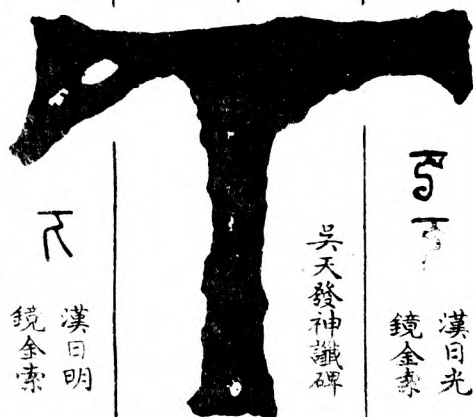 漢日光
鏡金索
吳天發神讖碑
漢日明
鏡金索